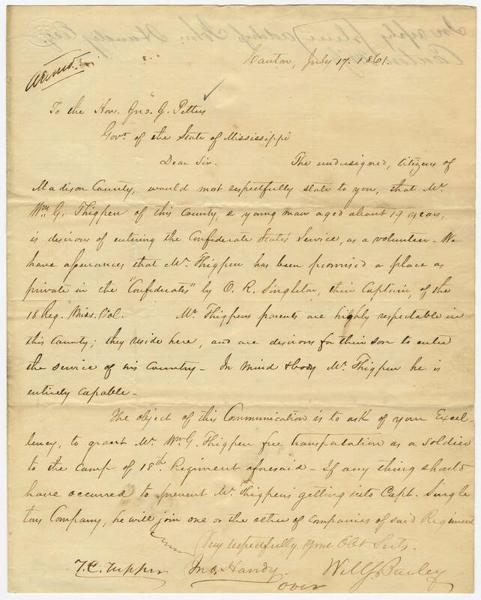 Canton, July 17. 1861.
To the Hon. Jno. J. Pettus
Govr. of the State of Mississippi
Dear Sir. The undersigned, Citizens of
Madison County, would most respectfully state to you, that Mr.
Wm G. Thigpen of this County, a young man aged about 19 years,
is desirous of entering the Confederate States Service, as a volunteer - We
have assurances that Mr. Thigpen has been promised a place as
private in the "Confederates" by O. R. Singleton, their Captain, of the
18 Reg. Miss. Vol. Mr Thigpens parents are highly respectable in
this County; they reside here, and are desirous for their son to enter
the service of his Country - In mind & body Mr. Thigpen he is
entirely capable -
The object of this Communication is to ask of your Excel-
lency, to grant Mr. Wm G. Thigpen free transportation as a Soldier
to the Camp of 18th Regiment aforesaid - If any thing should
have occurred to prevent Mr. Thigpens getting into Capt. Single
tons Company, he will join one or the other of companies of said Regiment
Very respectfully your Obt Svts.
T. C. Tupper Jno Handy
over